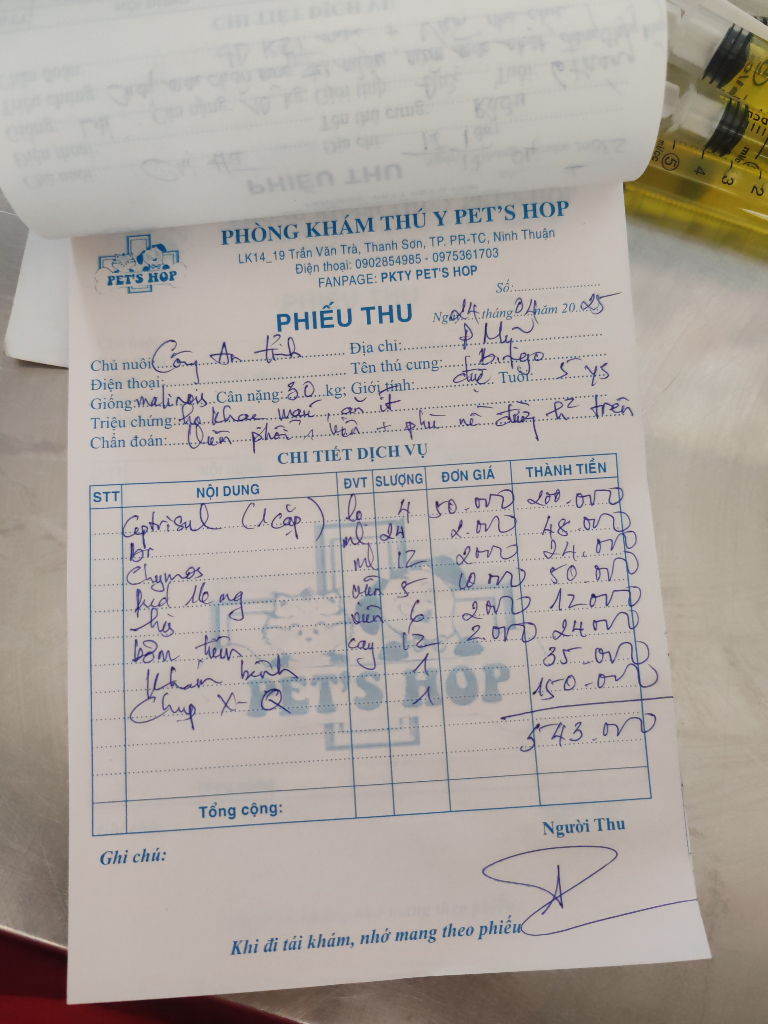 CHI TIẾT DỊCH VỤ
PHIẾU THU
PHÒNG KHÁM THÚ Y PET'S HOP
LK14_19 Trần Văn Trà, Thanh Sơn, TP. PR-TC, Ninh Thuận
Điện thoại: 0902854985 - 0975361703
FANPAGE: PKTY PET'S HOP
PET'S HOP
Số:
PHIẾU THU
Ngày 24 tháng 04 năm 2025
Chủ nuôi: Công An tỉnh Địa chỉ: P. Mỹ
Điện thoại: Tên thú cưng:
Giống: malinois Cân nặng: 30 kg; Giới tính: đực Tuổi: 5 ys
Triệu chứng: ho khạc máu, ăn ít
Chẩn đoán: Viêm phổi, + phù nề đường h² trên
CHI TIẾT DỊCH VỤ
STT NỘI DUNG ĐVT SLƯỢNG ĐƠN GIÁ THÀNH TIỀN
Ceptrisul (1 cặp) lọ 4 50.000 200.000
br ml 24 2.000 48.000
Chymos ml 12 2000 24.000
Pred 16 mg viên 5 10 000 50.000
viên 6 2000 12000
bơm tiêm cây 12 2.000 24000
Khám bệnh 1 35.000
Chụp X-Q 1 150.000
543.000
PET'S HOP
Tổng cộng:
Người Thu
Ghi chú:
Khi đi tái khám, nhớ mang theo phiếu